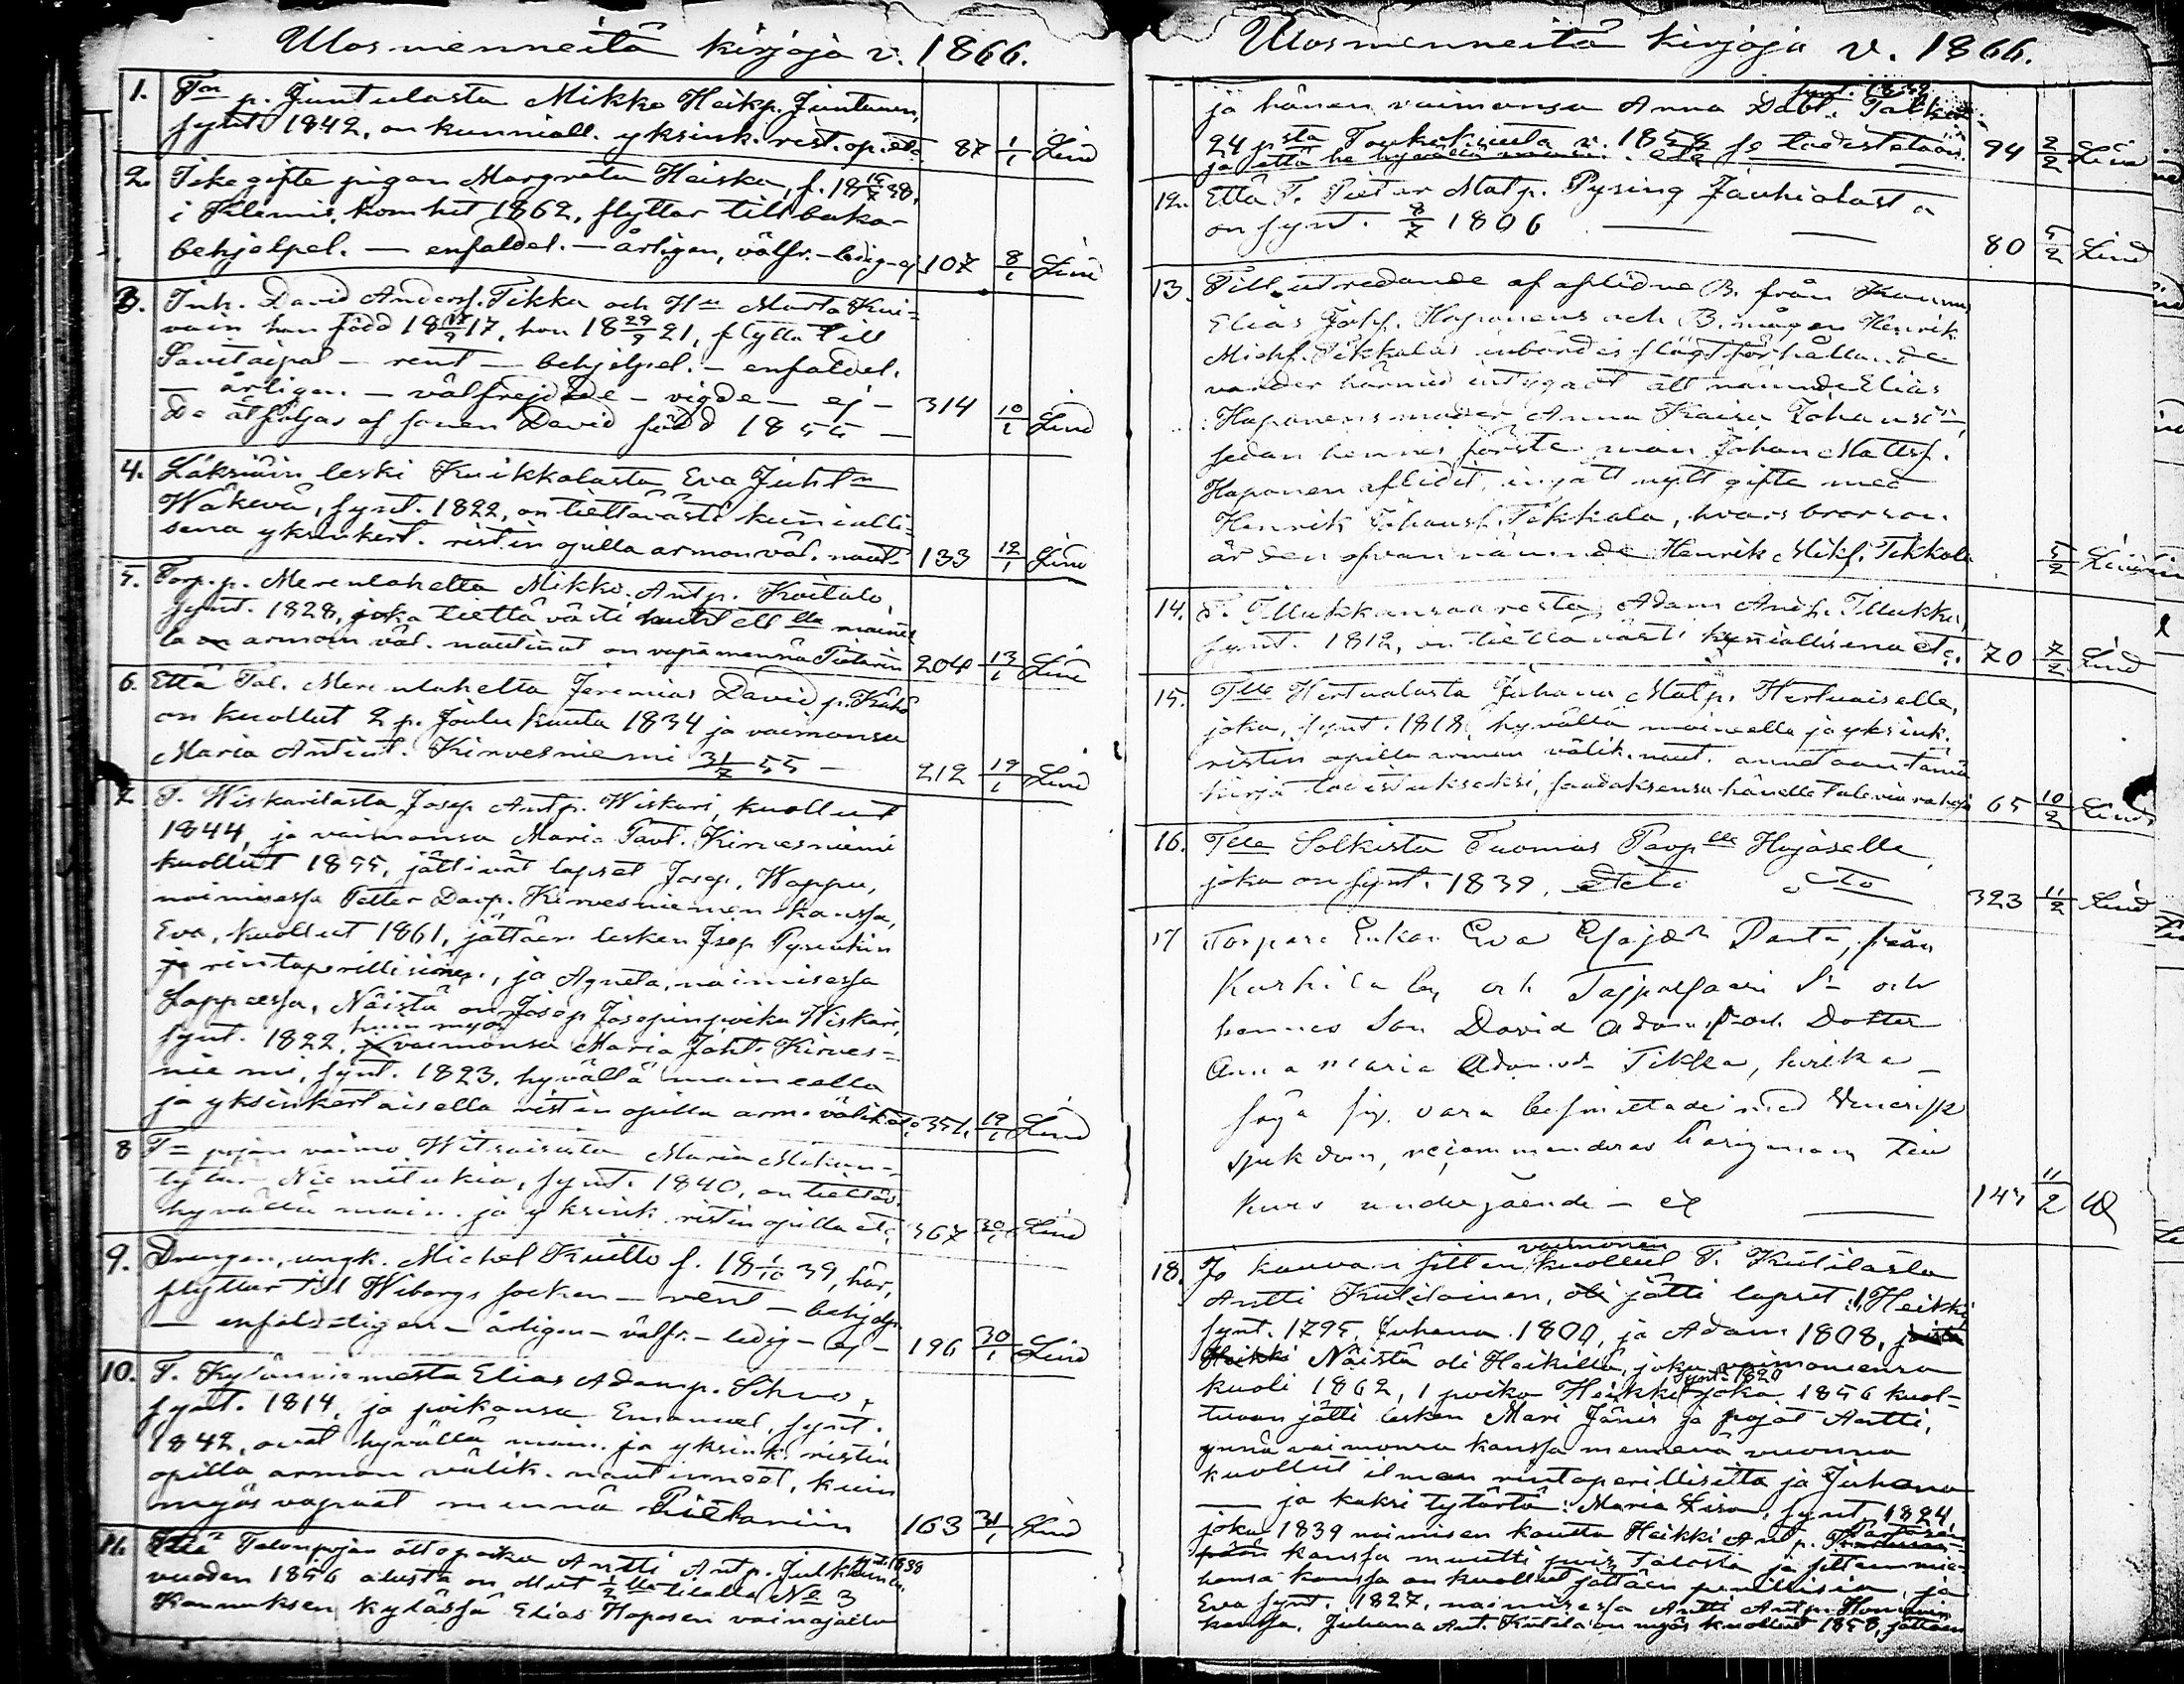 Ulosmenneitä kirjoja v. 1866.
1. Ton p. Juntulasta Mikko Heikp. Juntunen,
synt. 1842, on kunniall. yksink. rist. op. etc. 87 1/1 Lind
2. Tike gifta pigan Margreta Heiska, f. 18 38.
i Klemis, kom hit 1862, flyttar tillbaka
behjelpel. — enfaldel. — årligen, välfr. — ledig — ej 107 8/1 Lind
3. Inh. David Andersf. Tikka och Hu Marta Kui=
vain han född 18 17, hon 18 29/9 21, flytta till
Savitaipal — rent — behjelpel. — enfaldel.
— årligen — välfrejdade — vigde — ej —
De åtföljas af sonen David född 1855 — 314 10/1 Lind
4. leski Kuikkalasta Eva Juhtn
Wäkevä, synt. 1822, on tiettävästi kunialli=
sena yksinkert. ristin opilla armon väl. naut. 133 12/1 Lind
5. Torp. p. Merenlahelta Mikko Antp. Koitalo,
synt. 1828, joka tiettävästi lla maineel
la on armon väl. nautinut on vapa mennä Pietarin 204 13/1 Lind
6. Että Tal. Merenlahelta Jeremias Davidp.
on kuollut 2 p. Joulukuuta 1834 ja vaimonsa
Maria Antint. Kirvesniemi 31/7 55 — 212 19/1 Lind
7. T. Wiskarilasta Josep Antp. Wiskari, kuollut
1844, ja vaimonsa Maria Pavt. Kirvesniemi
kuollut 1855, jättivät lapset Josep, Wappu,
naimisessa Petter Davp. Kirvesniemen kanssa,
Eva, kuollut 1861, jättäen lesken Josep
ja rintaperillisiinsä, ja Agneta, naimisessa
Lappeessa, Näistä on Josep Josepinpoika Wiskari,
synt. 1822, kuin myös vaimonsa Maria Joht. Kirves=
niemi, synt. 1823, hyvällä maineella
ja yksinkertaisella ristin opilla arm. välik. etc. 351. 19/1 Lind
8 T= pojan vaimo Witsaisista Maria Mikon=
tytär Niemitukia, synt. 1840, on tiettäv.
hyvällä main. ja yksink. ristin opilla etc. 367 30/1 Lind
9. Drengen, ungk. Michel Kuitto f. 18 1/10 39, här,
flyttar till Wiborgs socken — rent — behjelp.
— enfaldeligen — årligen — välfr. — ledig — ej — 196 30/1 Lind
10. T. Kylänniemestä Elias Adamp. Sihvo,
synt. 1814, ja poikansa Emanuel, synt.
1842, ovat hyvällä main. ja yksink. ristin
opilla armon välik. nautinneet, kuin
myös vapaat mennä Pietariin 163 31/1 Lind
11. Että Talonpojan ottopoika Antti Antp. Julkkunen synt. 1838
vuoden 1856 alusta on ollut 1/2 lla tilalla No 3
Kannuksen kylässä Elias Haposen vainajalla
Ulosmenneitä kirjoja v. 1866.
ja hänen vaimonsa Anna Dabt. synt. 1832
24 psta Toukokuuta v. 1858 se todistetaan.
ja että he hyvällä main. etc. 94 2/2 Lind
12. Että T. Pieter Matp. Pysing Jauhialasta
on synt. 8/7 1806 — — 80 5/2 Lind
13. Till utredande af aflidne B. från Kannus
Elias Johf. Haponens och B. mågen Henrik
Michf. Tikkalas inbördes slägtförhållande
varder härmed intygadt att nämnde Elias
Haponens moder Anna Kaisa Johansdr,
sedan hennes förste man Johan Mattsf.
Haponen aflidit, ingått nytt gifte med
Henrik Johansf. Tikkala, hvars brorson
är den ofvannämnde Henrik Mikf. Tikkala 5/2 Lind
14. T. Illukkansaaresta, Adam Andp. Illukka,
synt. 1812, on tiettävästi kyniallisena etc. 70 7/2 Lind
15. Tlle Hertualasta Juhana Matp. Hertuaiselle,
joka, synt. 1818, hyvällä maineella ja yksink.
ristin opilla armon välik. naut. annetaan tämä
kirja todistukseksi, saadaksensa hänelle tulevia rahoja 65 10/2 Lind
16. Tlle Solkista Tuomas Pavplle Hujaselle,
joka on synt. 1839, etc. 323 11/2 Lind
17 Torpare Enkan Eva Esajædr Panta, från
Kurkila by och Tajpalsaari Sn och
hennes Son David Adamsf. och Dotter
Anna Maria Adamsdr Tikka, hvilka
säga sig vara besmittade med Venerisk
sjukdom, rekommenderas härigenom till
kurs undergående — ex — 145 11/2
18. Jo kauvan sitten vaimonen kuollut T. Kutilasta
Antti Kutilainen, oli jätti lapset: Heikki,
synt. 1795, Juhana 1800, ja Adam 1808, joista
Heikki Näistä oli Heikillä, joka vaimonensa
kuoli 1862, 1 poika Heikki synt. 1820 joka 1856 kuol=
tuvan jätti lesken Mari Jänis ja pojat Antti,
ynnä vaimonsa kanssa mennenä vuonna
kuollut ilman rintaperillisittä ja Juhana
— ja kaksi tytärtä: Maria Liisa, synt. 1824,
joka 1839 naimisen kautta Heikki Antp.
kanssa muutti pois Talosta ja sitten mie=
hensä kanssa on kuollut jättäen perillisiä, ja
Eva synt. 1827, naimisessa Antti Antp.
kanssa. Juhana Ant. Kutila on myös kuollut 1858, jättäen